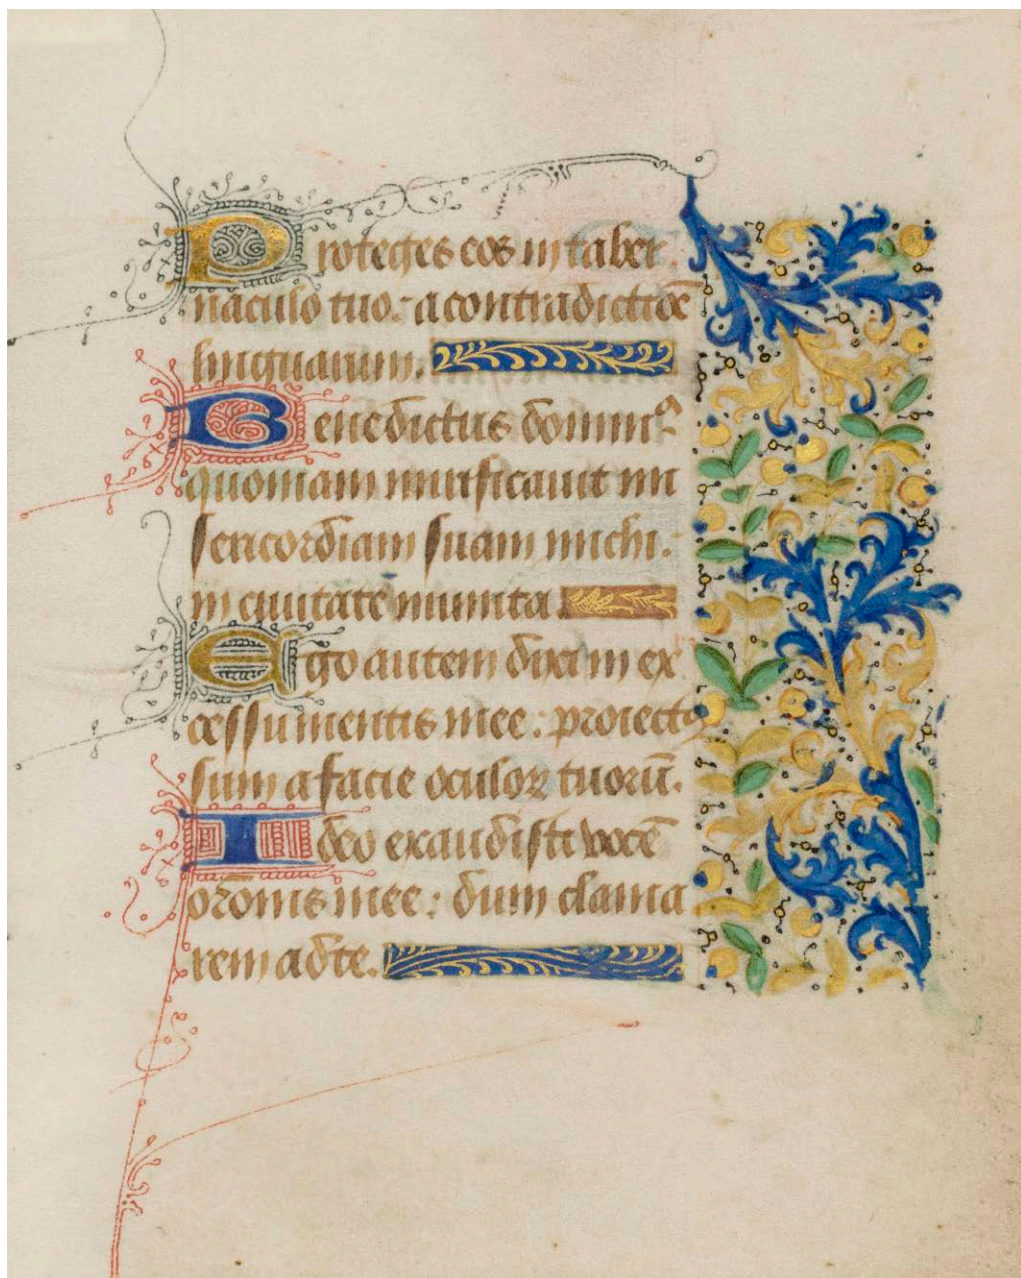 Proteges eos in taber
naculo tuo: a contradictiōe
linguarum.
Benedictus domin⁹:
quoniam mirificavit mi
sericordiam suam michi:
in civitate munita.
Ego autem dixi in ex
cessu mentis mee: proiectꝰ
sum a facie oculoꝝ tuorū.
Ideo exaudisti vocē
or̄onis mee: dum clama
rem ad te.